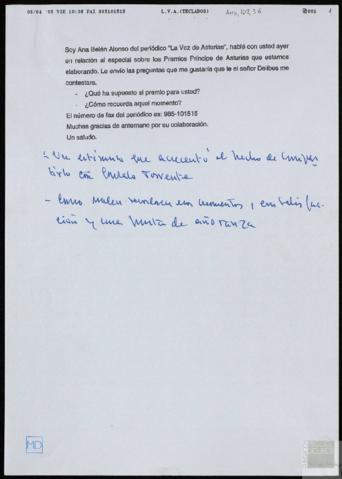 05/04 '05 VIE 10:36 FAX 985101515 L.V.A.(TECLADOS) 001
Soy Ana Belén Alonso del periódico "La Voz de Asturias", hablé con usted ayer
en relación al especial sobre los Premios Príncipe de Asturias que estamos
elaborando. Le envío las preguntas que me gustaría que le el señor Delibes me
contestara.
- ¿Qué ha supuesto el premio para usted?
- ¿Cómo recuerda aquel momento?
El número de fax del periódico es: 985-101515
Muchas gracias de antemano por su colaboración.
Un saludo.
- Un estímulo que acrecentó el hecho de compar
tirlo con Gonzalo Torrente
- Como suelen recordarse esos momentos, con satisfac-
ción y una punta de añoranza
MD